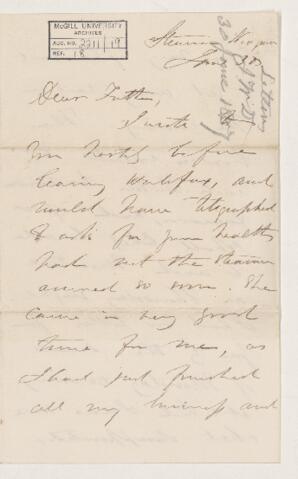 McGILL UNIVERSITY
ARCHIVES
ACC. NO. 2211/19
REF. 18
Steamer
June 30
Dear Father,
I wrote
you hastily before
leaving Halifax, and
would have telegraphed
to ask for your health
had not the steamer
arrived so soon. She
came in very good
time for me, as
I had just finished
all my business and